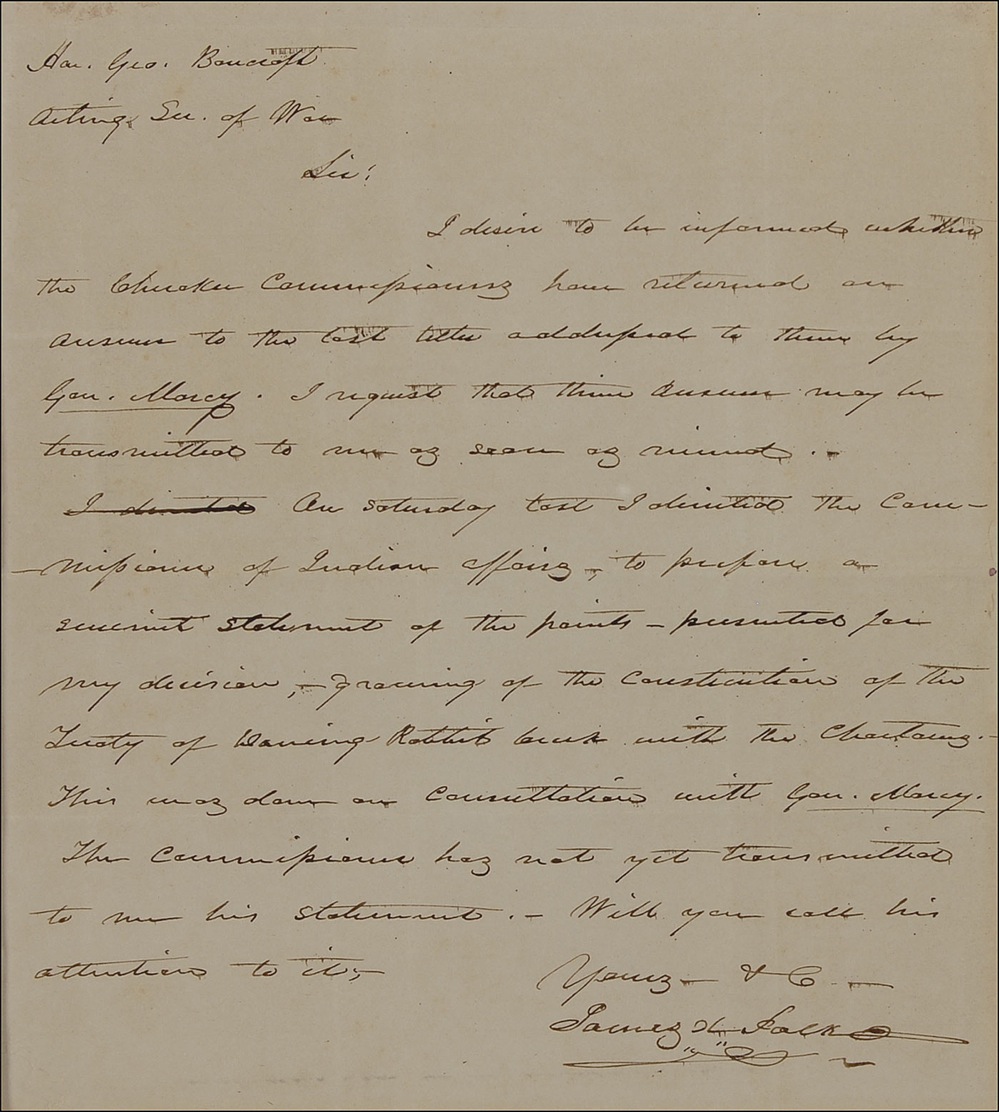 Hon. Geo. Bancroft
Acting Sec. of War
Sir:
I desire to be informed whether
the Cherokee Commissioners have returned an
answer to the last letter addressed to them by
Gov. Marcy. I request that their answer may be
transmitted to me as soon as received. -
I directed On Saturday last I directed the Com-
-missioner of Indian affairs - to prepare a
succinct statement of the points - presented for
my decision, - growing of the construction of the
Treaty of Dancing Rabbit creek with the Choctaws. -
This was done on consultation with Gov. Marcy.
The Commissioner has not yet transmitted
to me his statement. - Will you call his
attention to it, -
Yours - &C -
James K. Polk